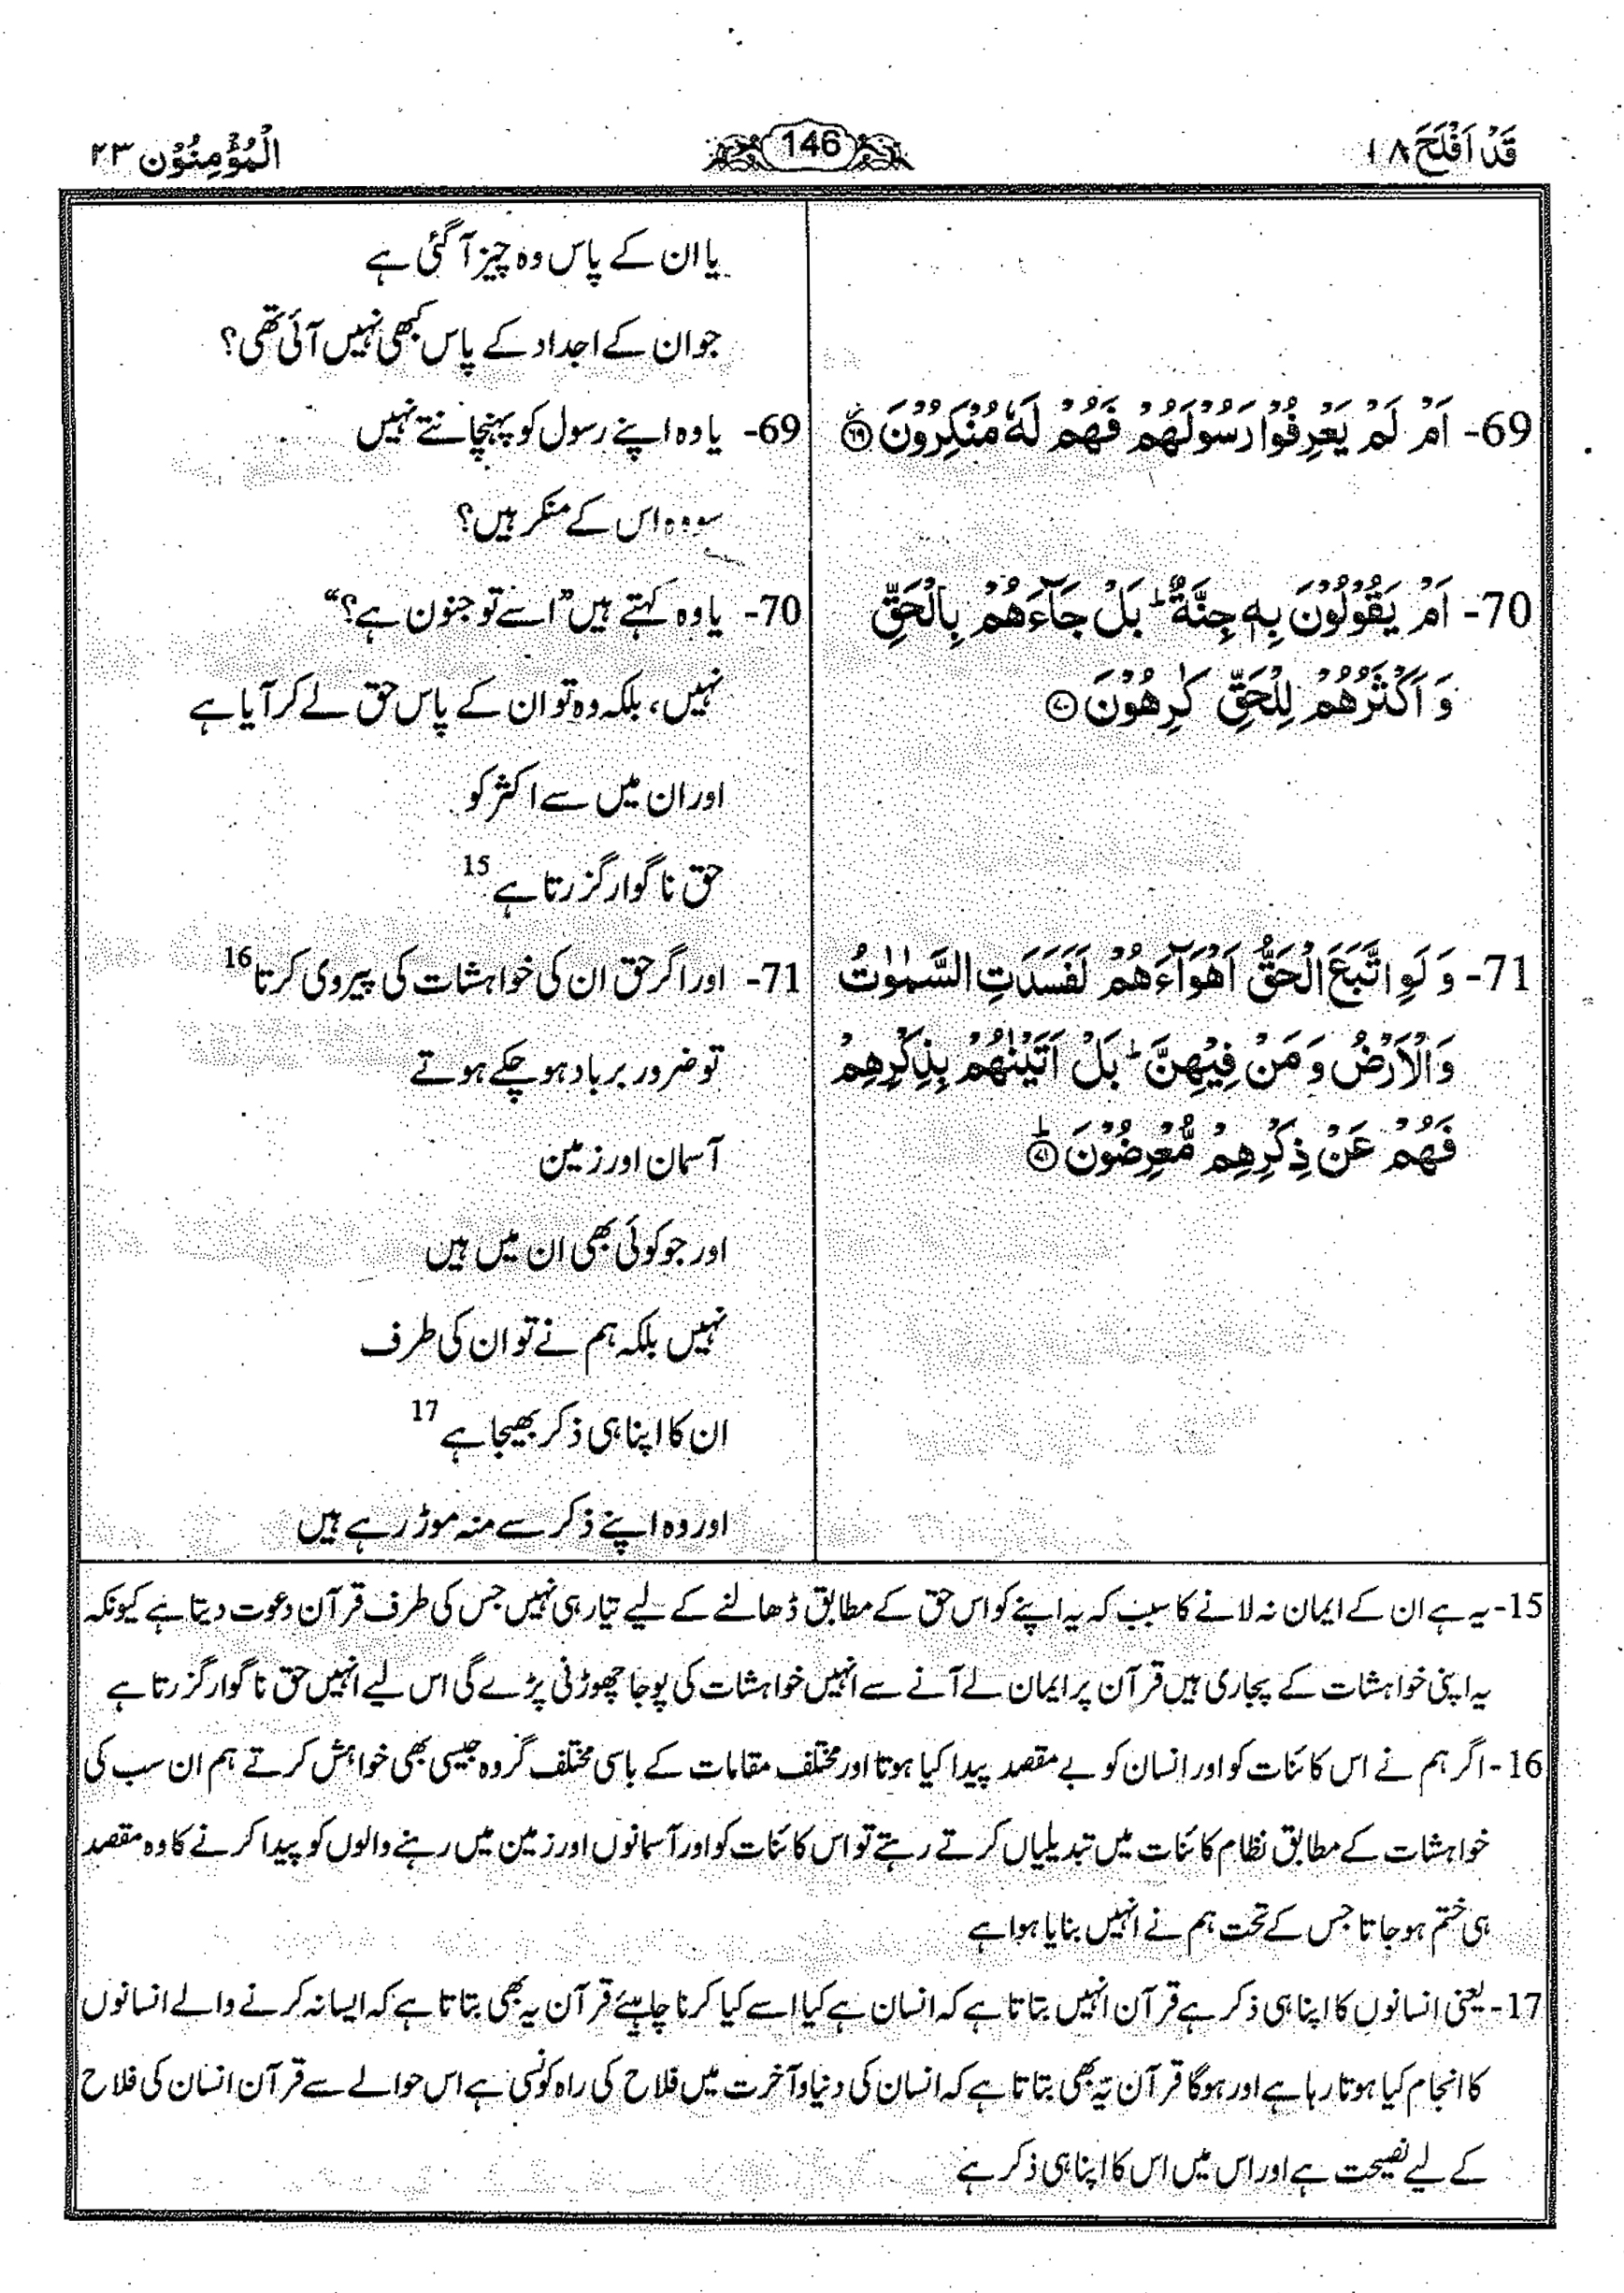 قَدْ اَفْلَحَ ۱۸
146
الْمُؤْمِنُوْن ۲۳
69- اَمْ لَمْ يَعْرِفُوْا رَسُوْلَهُمْ فَهُمْ لَهٗ مُنْكِرُوْنَ ۶۹
70- اَمْ يَقُوْلُوْنَ بِهٖ جِنَّةٌ ؕ بَلْ جَآءَهُمْ بِالْحَقِّ
وَ اَكْثَرُهُمْ لِلْحَقِّ كٰرِهُوْنَ ۷۰
71- وَ لَوِ اتَّبَعَ الْحَقُّ اَهْوَآءَهُمْ لَفَسَدَتِ السَّمٰوٰتُ
وَالْاَرْضُ وَ مَنْ فِيْهِنَّ ؕ بَلْ اَتَيْنٰهُمْ بِذِكْرِهِمْ
فَهُمْ عَنْ ذِكْرِهِمْ مُّعْرِضُوْنَ ؕ ۷۱
یا ان کے پاس وہ چیز آ گئی ہے
جو ان کے اجداد کے پاس کبھی نہیں آئی تھی؟
69- یا وہ اپنے رسول کو پہنچانتے نہیں
سو وہ اس کے منکر ہیں؟
70- یا وہ کہتے ہیں ”اسے تو جنون ہے؟“
نہیں، بلکہ وہ تو ان کے پاس حق لے کر آیا ہے
اور ان میں سے اکثر کو
حق نا گوار گزرتا ہے 15
71- اور اگر حق ان کی خواہشات کی پیروی کرتا 16
تو ضرور برباد ہو چکے ہوتے
آسمان اور زمین
اور جو کوئی بھی ان میں ہیں
نہیں بلکہ ہم نے تو ان کی طرف
ان کا اپنا ہی ذکر بھیجا ہے 17
اور وہ اپنے ذکر سے منہ موڑ رہے ہیں
15- یہ ہے ان کے ایمان نہ لانے کا سبب کہ یہ اپنے کو اس حق کے مطابق ڈھالنے کے لیے تیار ہی نہیں جس کی طرف قرآن دعوت دیتا ہے کیونکہ
یہ اپنی خواہشات کے پجاری ہیں قرآن پر ایمان لے آنے سے انہیں خواہشات کی پوجا چھوڑنی پڑے گی اس لیے انہیں حق نا گوار گزرتا ہے
16- اگر ہم نے اس کائنات کو اور انسان کو بے مقصد پیدا کیا ہوتا اور مختلف مقامات کے باسی مختلف گروہ جیسی بھی خواہش کرتے ہم ان سب کی
خواہشات کے مطابق نظام کائنات میں تبدیلیاں کرتے رہتے تو اس کائنات کو اور آسمانوں اور زمین میں رہنے والوں کو پیدا کرنے کا وہ مقصد
ہی ختم ہو جاتا جس کے تحت ہم نے انہیں بنایا ہوا ہے
17- یعنی انسانوں کا اپنا ہی ذکر ہے قرآن انہیں بتاتا ہے کہ انسان ہے کیا اسے کیا کرنا چاہیئے قرآن یہ بھی بتاتا ہے کہ ایسا نہ کرنے والے انسانوں
کا انجام کیا ہوتا رہا ہے اور ہوگا قرآن یہ بھی بتاتا ہے کہ انسان کی دنیا و آخرت میں فلاح کی راہ کونسی ہے اس حوالے سے قرآن انسان کی فلاح
کے لیے نصیحت ہے اور اس میں اس کا اپنا ہی ذکر ہے